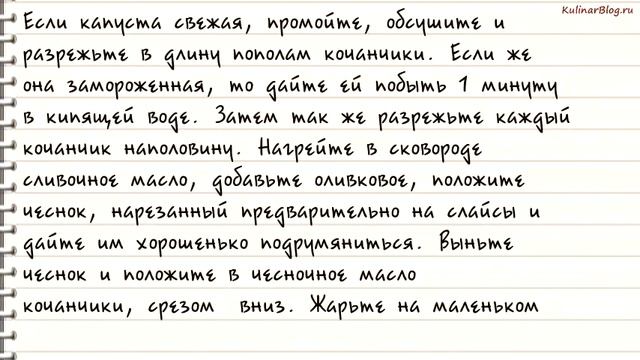 KulinarBlog.ru
Если капуста свежая, промойте, обсушите и
разрежьте в длину пополам кочанчики. Если же
она замороженная, то дайте ей побыть 1 минуту
в кипящей воде. Затем так же разрежьте каждый
кочанчик наполовину. Нагрейте в сковороде
сливочное масло, добавьте оливковое, положите
чеснок, нарезанный предварительно на слайсы и
дайте им хорошенько подрумяниться. Выньте
чеснок и положите в чесночное масло
кочанчики, срезом вниз. Жарьте на маленьком